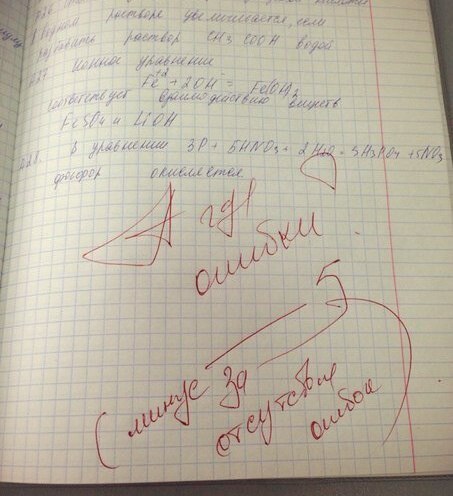 водном растворе увеличивается, если
разбавить раствор CH3COOH водой
227 Ионное уравнение
Fe+2 + 2OH = Fe(OH)2
соответствует взаимодействию веществ
FeSO4 и LiOH
228. В уравнении 3P + 5HNO3 + 2H2O = 3H3PO4 + 5NO,
фосфор окисляется
А где
ошибки
5-
(минус за
отсутствие
ошибок)